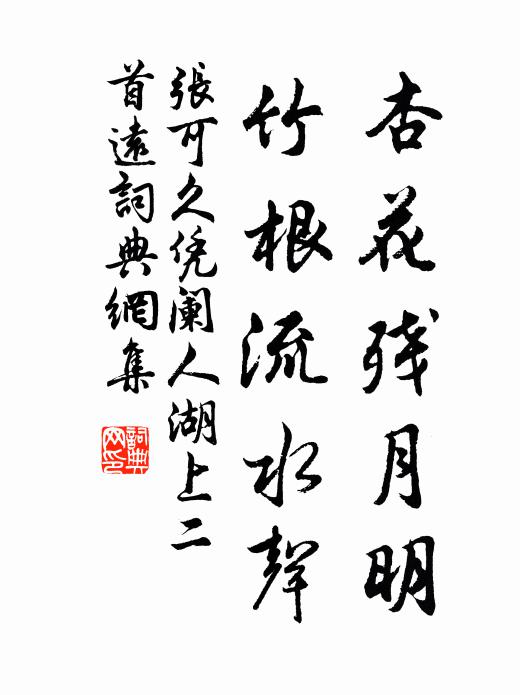 杏花残月明
竹根流水聲
張可久凭阑人湖上二
首遠詞典網集
詞典
网印